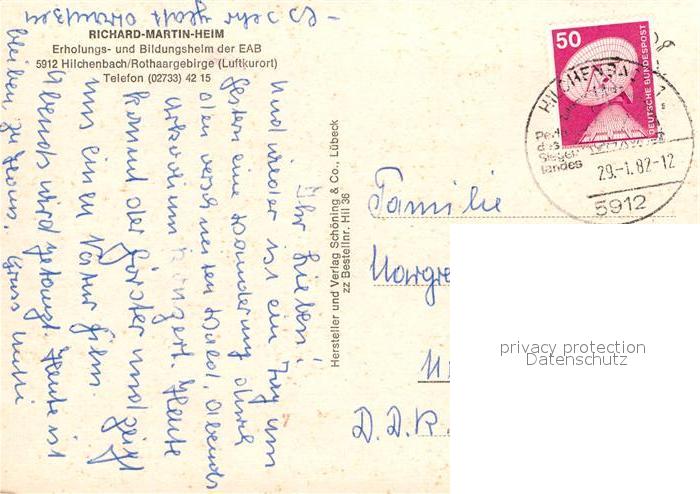 RICHARD-MARTIN-HEIM
Erholungs- und Bildungsheim der EAB
5912 Hilchenbach/Rothaargebirge (Luftkurort)
Telefon (02733) 42 15
Ihr Lieben!
Und wieder ist ein Tag um
gestern eine Wanderung durch
den verschneiten Wald, abends
Akkordium Konzert. Heute
kommt der Förster und zeigt
uns einen Natur film.
Abends wird getanzt. Heute ist
bleiben, zu Haus. Gruss Mutti
es sehr glatt draußen
Hersteller und Verlag Schöning & Co., Lübeck
zz Bestellnr. Hil 36
50
DEUTSCHE BUNDESPOST
HILCHENBACH
Perle
des
Sieger-
landes
29.-1.82-12
5912
Familie
Margre
D.D.R.
privacy protection
Datenschutz